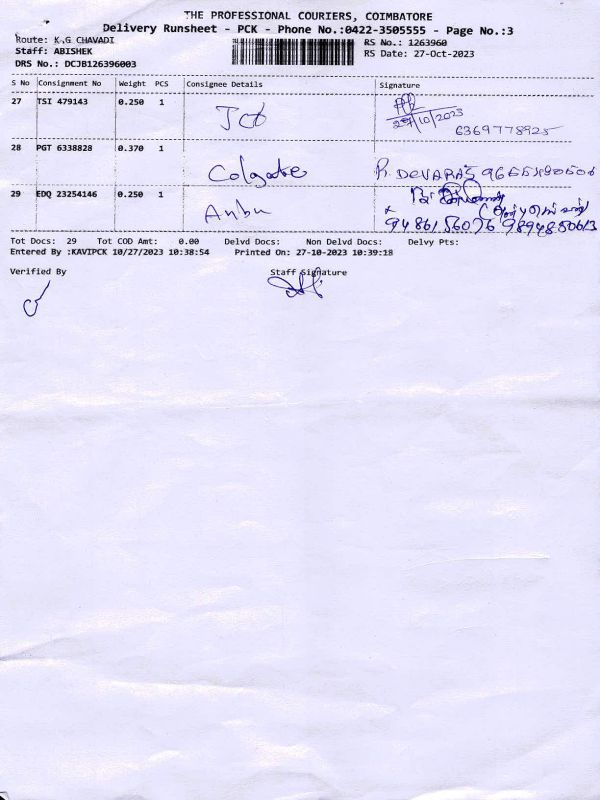 THE PROFESSIONAL COURIERS, COIMBATORE
Delivery Runsheet - PCK - Phone No.:0422-3505555 - Page No.:3
Route: K.G CHAVADI
RS No.: 1263960
Staff: ABISHEK
RS Date: 27-Oct-2023
DRS No.: DCJB126396003
S No Consignment No Weight PCS Consignee Details Signature
27 TSI 479143 0.250 1
27/10/2023
6369778925
28 PGT 6338828 0.370 1 Colgate R. DEVARAJ
29 EDQ 23254146 0.250 1 Anbu
9486156076
Tot Docs: 29 Tot COD Amt: 0.00 Delvd Docs: Non Delvd Docs: Delvy Pts:
Entered By :KAVIPCK 10/27/2023 10:38:54 Printed On: 27-10-2023 10:39:18
Verified By Staff Signature